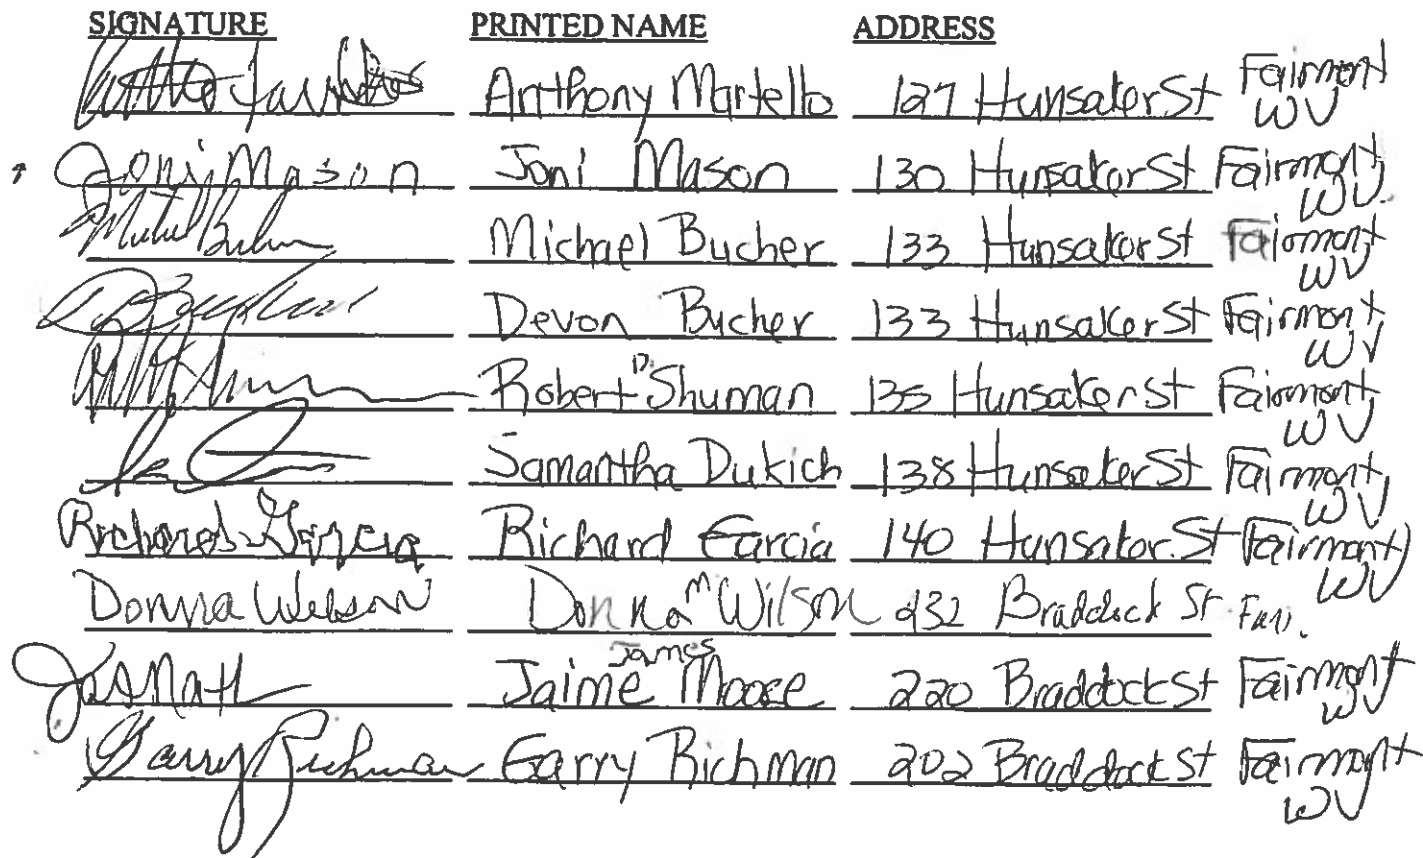 SIGNATURE PRINTED NAME ADDRESS
Anthony Martello 127 Hunsaker St Fairmont WV
Joni Mason Joni Mason 130 Hunsaker St Fairmont WV.
Michael Bucher 133 Hunsaker St Fairmont WV
Devon Bucher 133 Hunsaker St Fairmont WV
Robert D. Shuman 135 Hunsaker St Fairmont WV
Samantha Dukich 138 Hunsaker St Fairmont WV
Richard Garcia Richard Garcia 140 Hunsaker St Fairmont WV
Donna Wilson Donna M Wilson 232 Braddock St
James
Jaime 220 Braddock St Fairmont WV
Garry Richman Garry Richman 202 Braddock St Fairmont WV